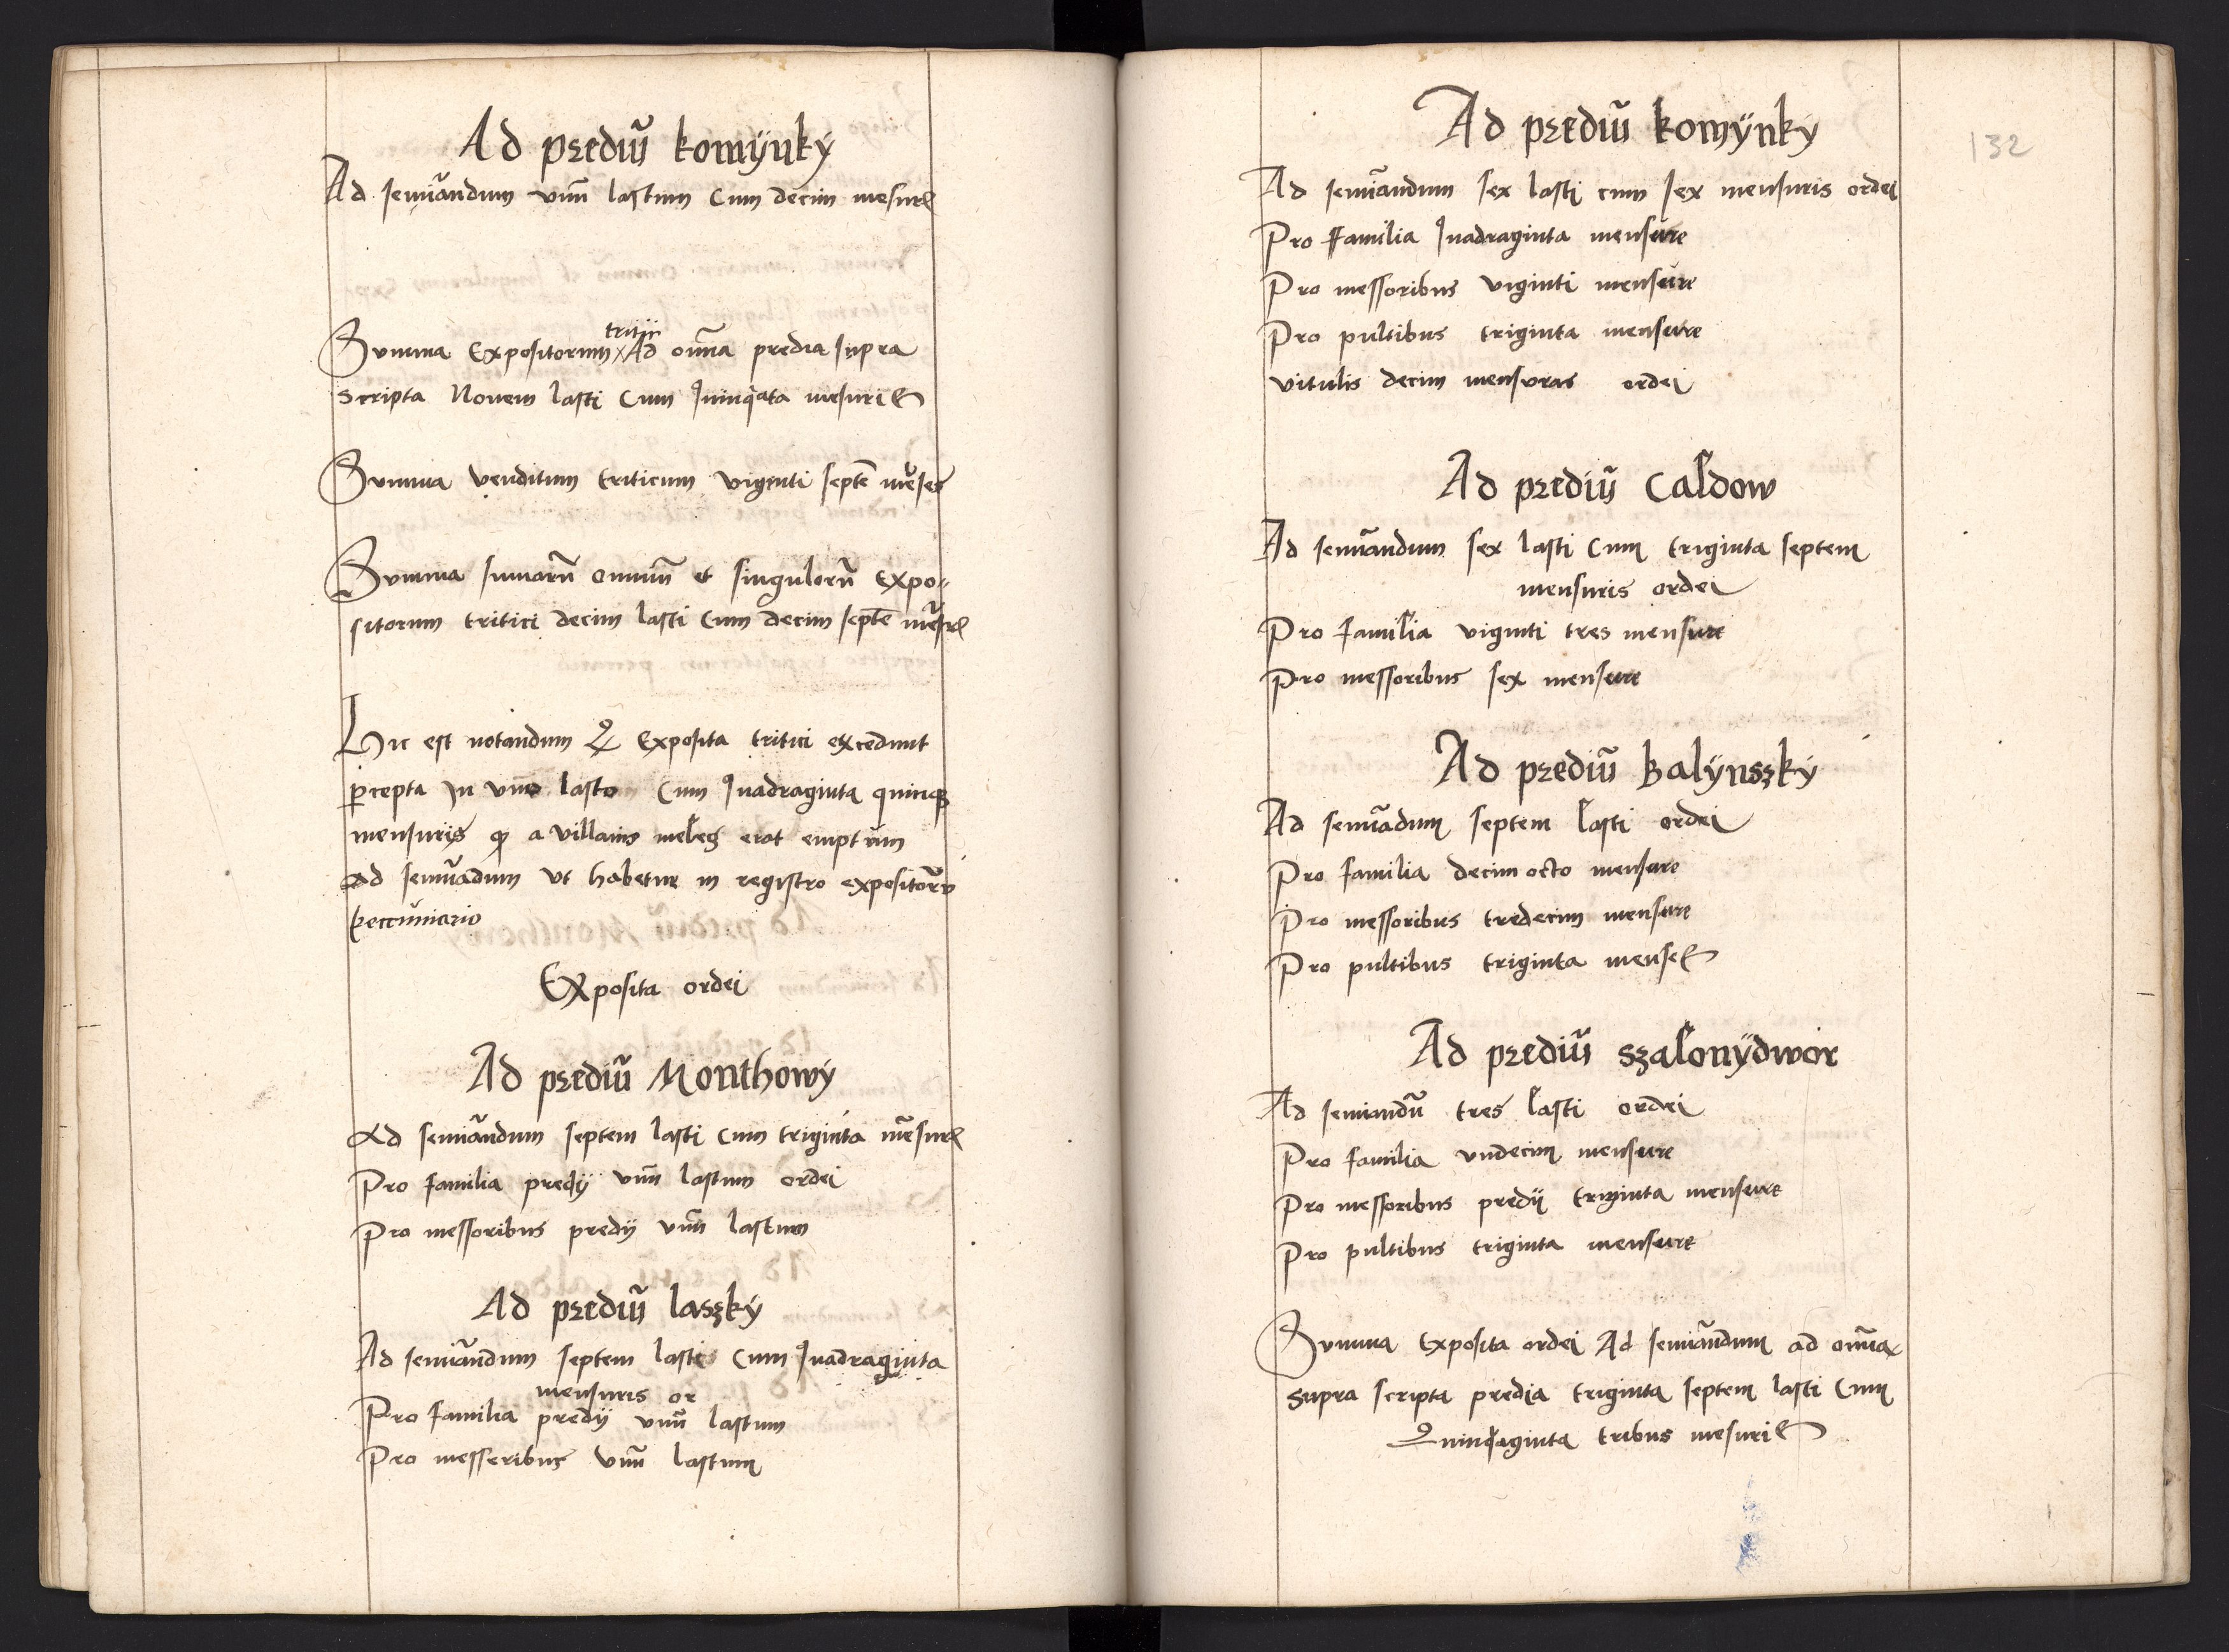 Ad prediũ komÿnkÿ
Ad semiãndum vnũ lastum Cum decim mesurꝭ
tritici
Summa Expositorum × Ad om̃ia predia supra
scripta Nouem lasti Cum quinq̃ata mesuris
Summa venditum triticum viginti septẽ mẽses
Summa sumarũ omniũ et singulorũ Expo-
sitorum tritici decim lasti cum decim septẽ mẽsurꝭ
Hic est notandum Qꝫ Exposita tritici excedunt
ꝑcepta In vno lasto Cum quadraginta quinqꝫ
mensurijs qꝫ a villanis melꝫ erat emptum
ad semiãdum vt habetur in registro expositorũ
peccuniario
Exposita ordei
Ad prediũ Monthowÿ
Ad semiãndum septem lasti cum triginta mẽsurꝭ
Pro familia predij vnũ lastum ordei
Pro messoribus predij vnũ lastum
Ad prediũ laszkÿ
Ad semiãndum septem lasti Cum quadraginta
mensuris or
Pro familia predij vnũ lastum
Pro messeribus vnũ lastum
132
Ad prediũ komÿnkÿ
Ad semiãndum sex lasti cum sex mensuris ordei
Pro ffamilia quadraginta mensure
Pro messoribus viginti mensure
Pro pultibus triginta mensure
vitulis decim mensuras ordei
Ad prediũ Caldow
Ad semiãndum sex lasti Cum triginta septem
mensuris ordei
Pro familia viginti tres mensure
Pro messoribus sex mensure
Ad prediũ Balÿnszkÿ
Ad semiãdum septem lasti ordei
Pro familia decim octo mensure
Pro messoribus tredecim mensure
Pro pultibus triginta mense
Ad prediũ szalonÿdwor
Ad semiandũ tres lasti ordei
Pro familia vndecim mensure
Pro messoribus predij triginta mensure
Pro pultibus triginta mensure
Summa Exposita ordei Ad semiãndum ad om̃ia
supra scripta predia triginta septem lasti Cum
Quinqaginta tribus mesuris